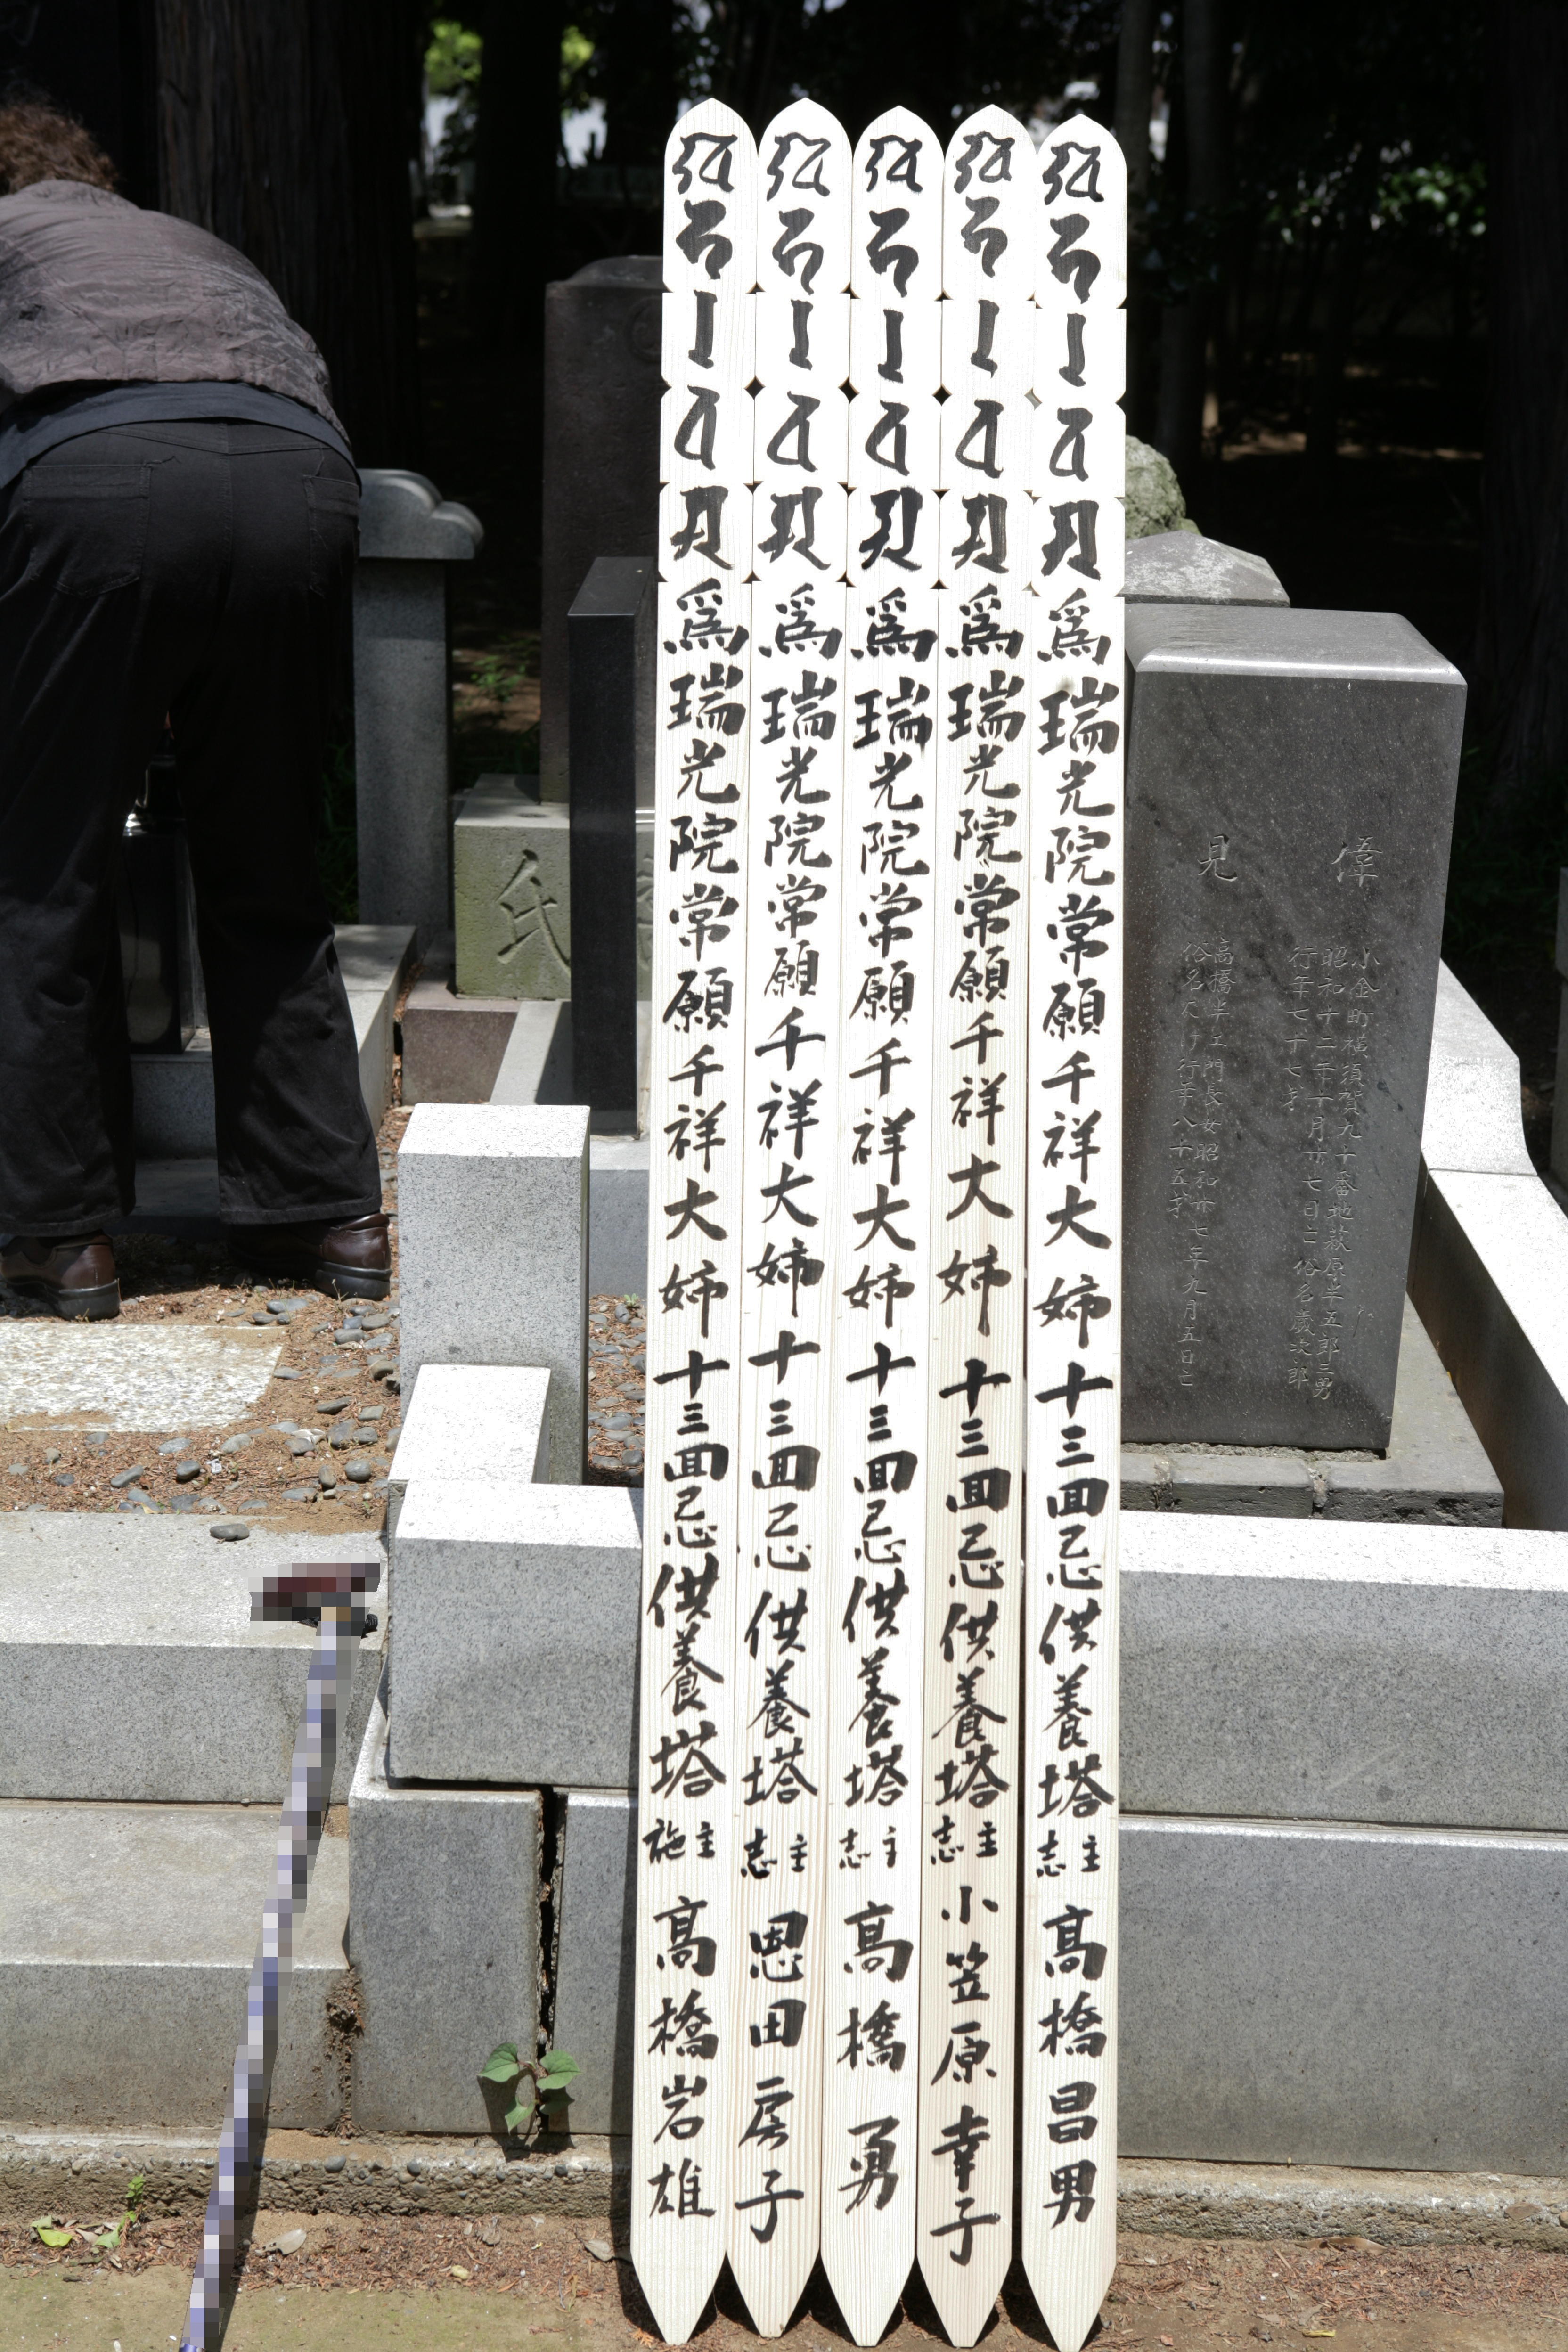 偉
小金町横須賀九十番地萩原半五郎三男
昭和十二年十月廿七日亡 俗名歳次郎
行年七十七才
見
高橋半ヱ門長女昭和廿七年九月五日亡
俗名たけ行年八十五才
爲瑞光院常願千祥大姉十三回忌供養塔 志主 高橋昌男
爲瑞光院常願千祥大姉十三回忌供養塔 志主 小笠原幸子
爲瑞光院常願千祥大姉十三回忌供養塔 志主 高橋勇
爲瑞光院常願千祥大姉十三回忌供養塔 志主 恩田房子
爲瑞光院常願千祥大姉十三回忌供養塔 施主 高橋岩雄
氏